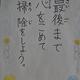 最後まで
心をこめて
掃除をしよう。